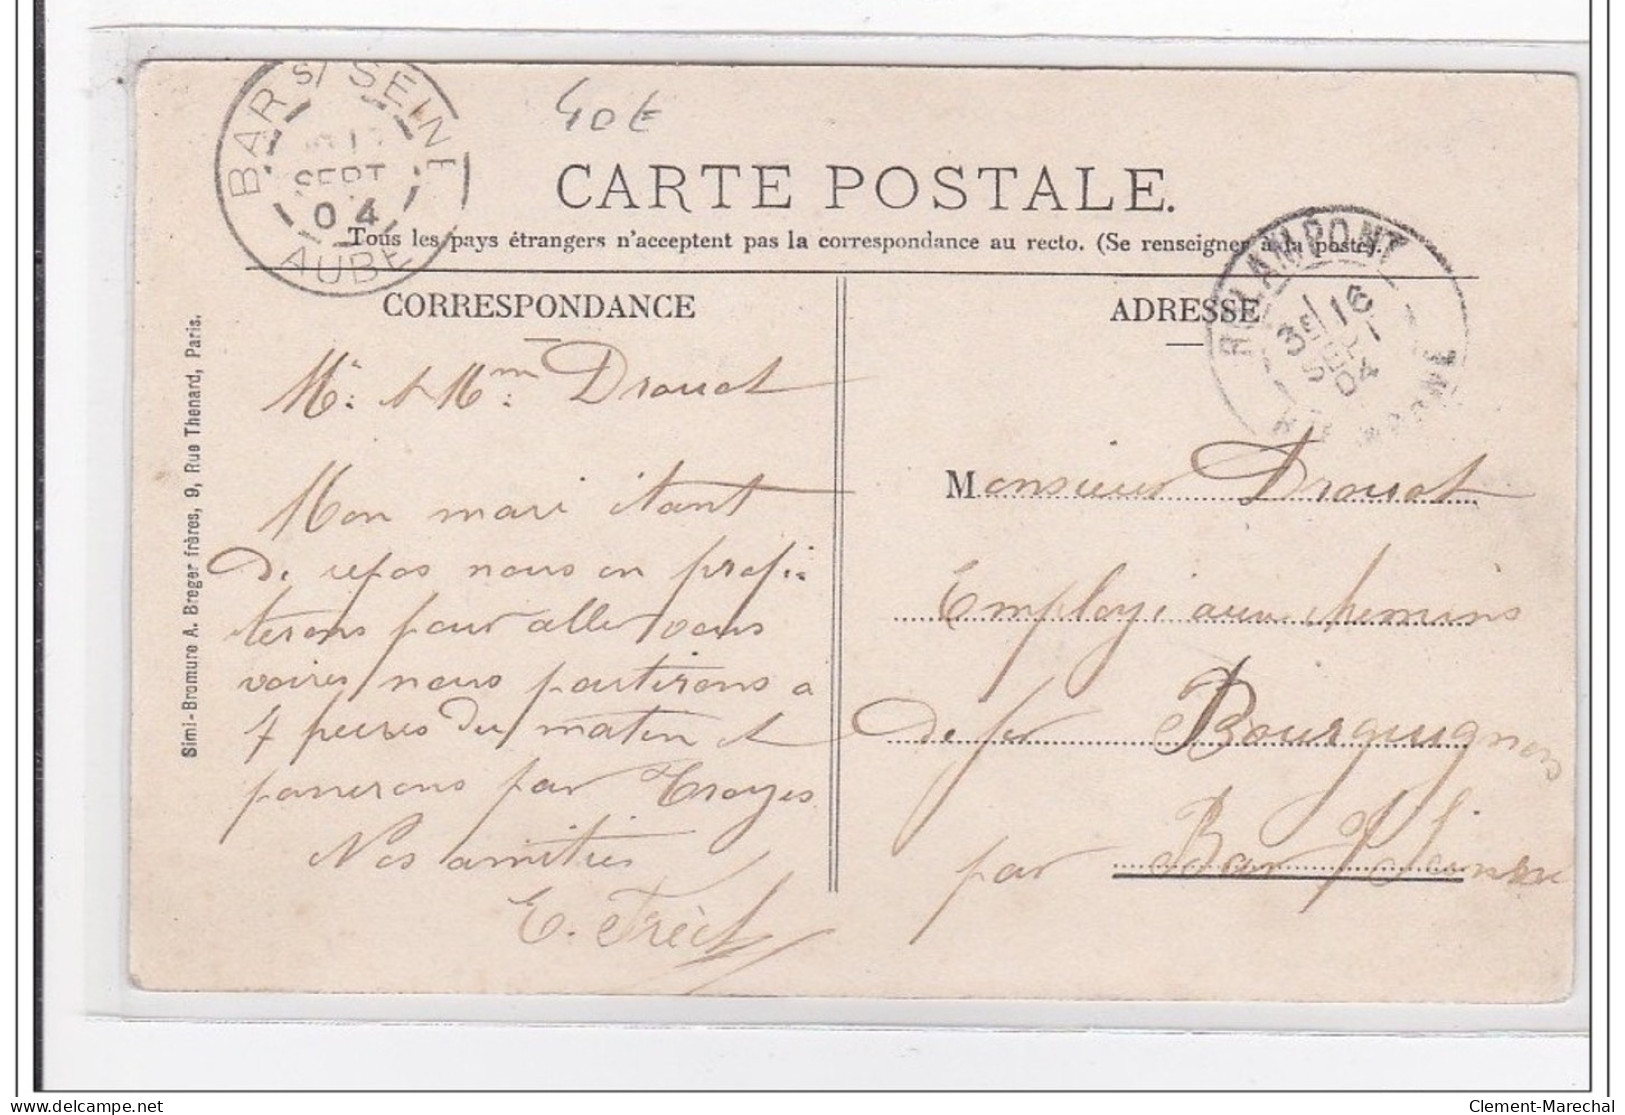 BAR S/ SEINE
SEPT
04
AUBE
40€
CARTE POSTALE.
Tous les pays étrangers n'acceptent pas la correspondance au recto. (Se renseigner à la poste).
ROLAMPONT
3E / 16
SEPT
04
CORRESPONDANCE
ADRESSE
Mr. & Mme. Drouot
Mon mari étant
de repos nous en profi-
terons pour aller vous
voires nous partirons a
7 heures du matin et
passerons par Troyes
Nos amitiés
E.
Monsieur Drouot
Employé aux chemins
de fer Bourguignons
par Bar s/ Seine
Simi-Bromure A. Breger frères, 9, Rue Thenard, Paris.
Clement-Marechal
delcampe.net